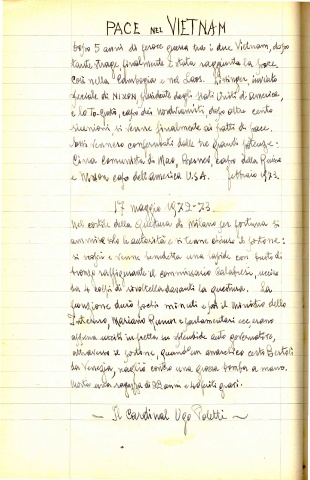 PACE NEL VIETNAM
Dopo 5 anni di feroce guerra tra i due Vietnam, dopo
tante stragi, finalmente è stata raggiunta la pace.
Così nella Cambogia e nel Laos. Kissinger, inviato
speciale di NIXON, presidente degli Stati Uniti d'America,
e Le To-, capo dei nordvietnamiti, dopo oltre cento
riunioni, si venne finalmente ai patti di pace.
Patti vennero confermati dalle tre grandi potenze:
Cina Comunista di Mao, Bresnev, capo della Russia
e Nixon capo dell'america U.S.A. febbraio 1973.
17 maggio 1972-73.
Nel cortile della Questura di Milano per fortuna si
ammise solo le autorità e si tenne chiuso il portone:
si scoprì e venne benedetta una lapide con busto di
bronzo raffigurante il commissario Calabresi, ucciso
da 4 colpi di rivoltella davanti la questura. La
funzione durò pochi minuti e poi il Ministro dello
Interno, Mariano Rumor e parlamentari ecc. erano
appena usciti in fretta su splendide auto governatore,
attraverso il portone, quando un anarchico certo Bertoli
da Venezia, scagliò contro una grossa bomba a mano.
Morta una ragazza di 22 anni e 40 feriti gravi.
— Il Cardinal Ugo Poletti —